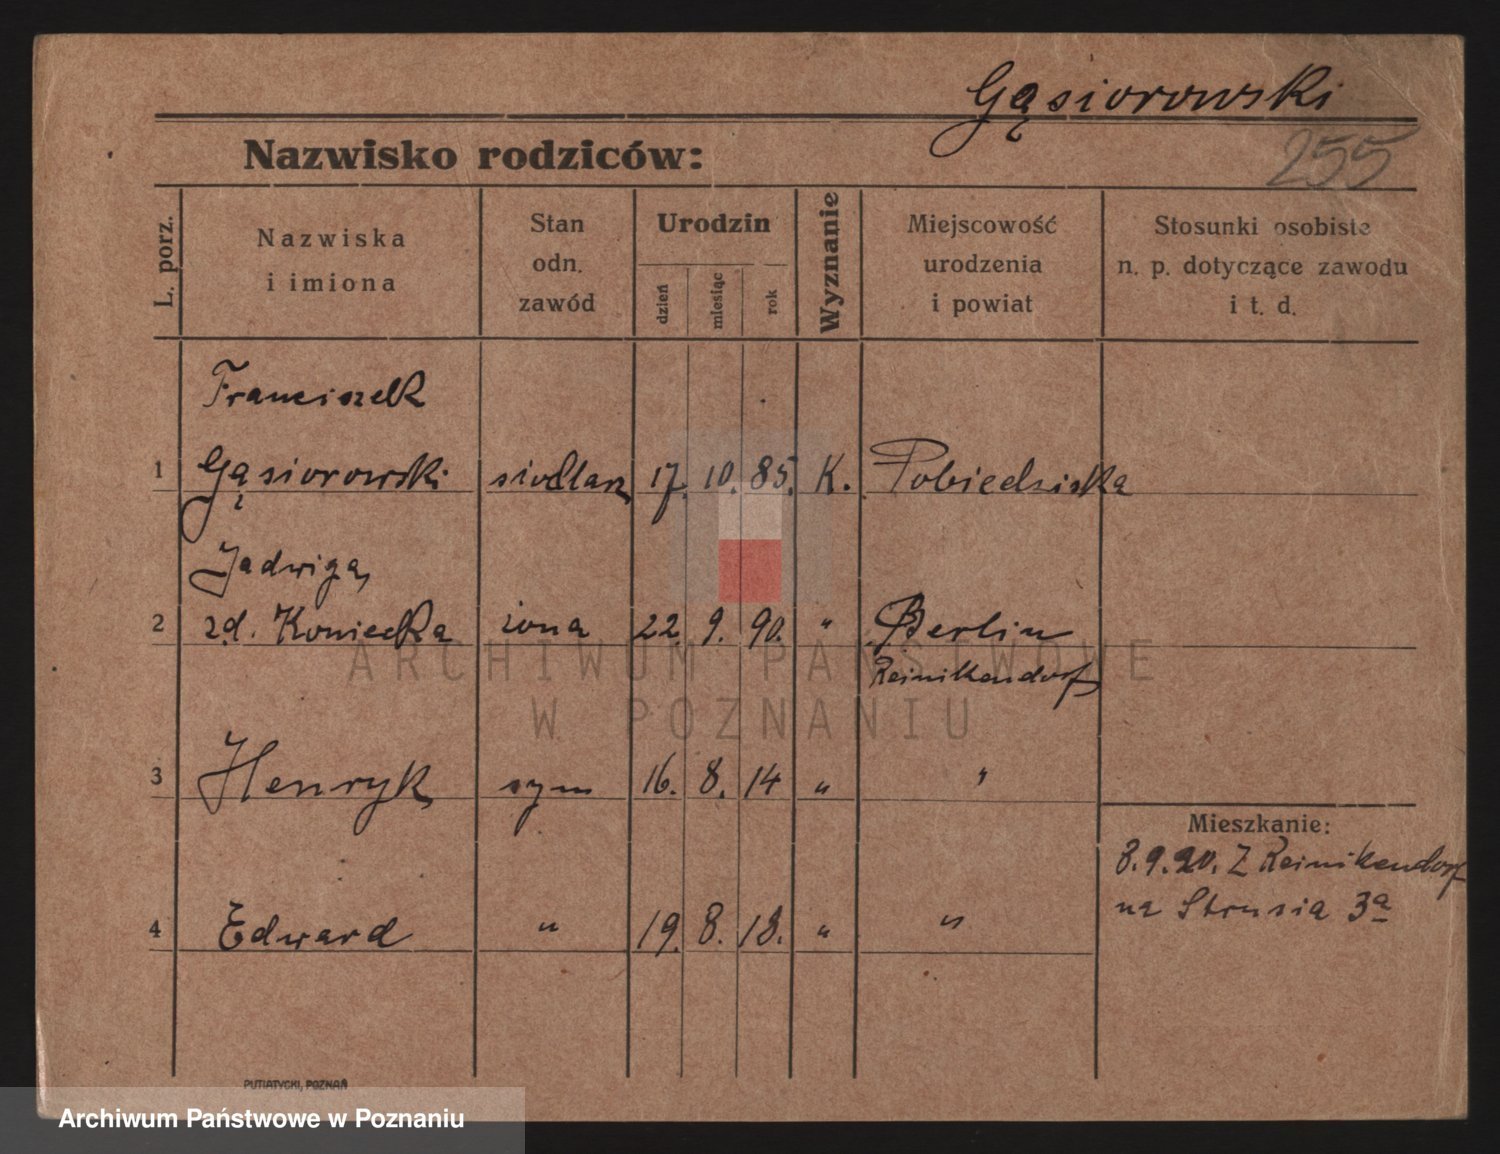 Gąsiorowski
255
Nazwisko rodziców:
L. porz.
Nazwiska
i imiona
Stan
odn.
zawód
Urodzin
dzień
miesiąc
rok
Wyznanie
Miejscowość
urodzenia
i powiat
Stosunki osobiste
n. p. dotyczące zawodu
i t. d.
Franciszek
1 Gąsiorowski siodlarz 17. 10. 85. K. Pobiedziska
Jadwiga,
2 zd. Koniecka żona 22. 9. 90. " Berlin
Reinikendorf
3 Henryk syn 16. 8. 14 " "
Mieszkanie:
8.9.20. Z Reinikendorf
na Strusia 3a
4 Edward " 19. 8. 18. " "
ARCHIWUM PAŃSTWOWE
W POZNANIU
PUTIATYCKI, POZNAŃ
Archiwum Państwowe w Poznaniu